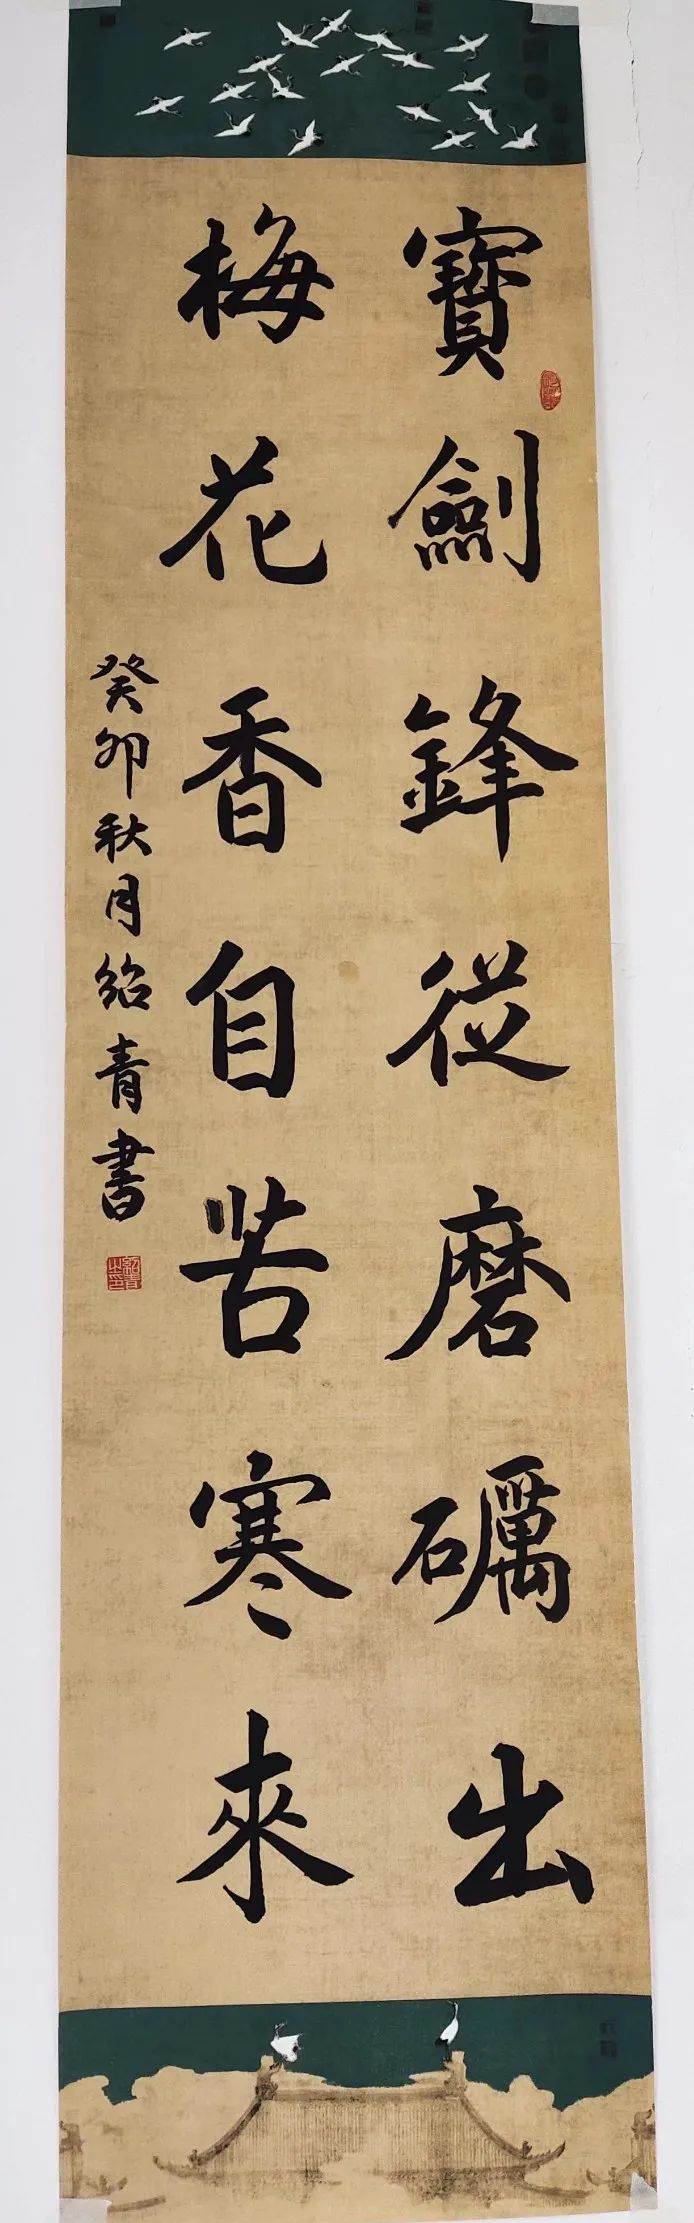 寶劍鋒從磨礪出
梅花香自苦寒來
癸卯秋月紹青書